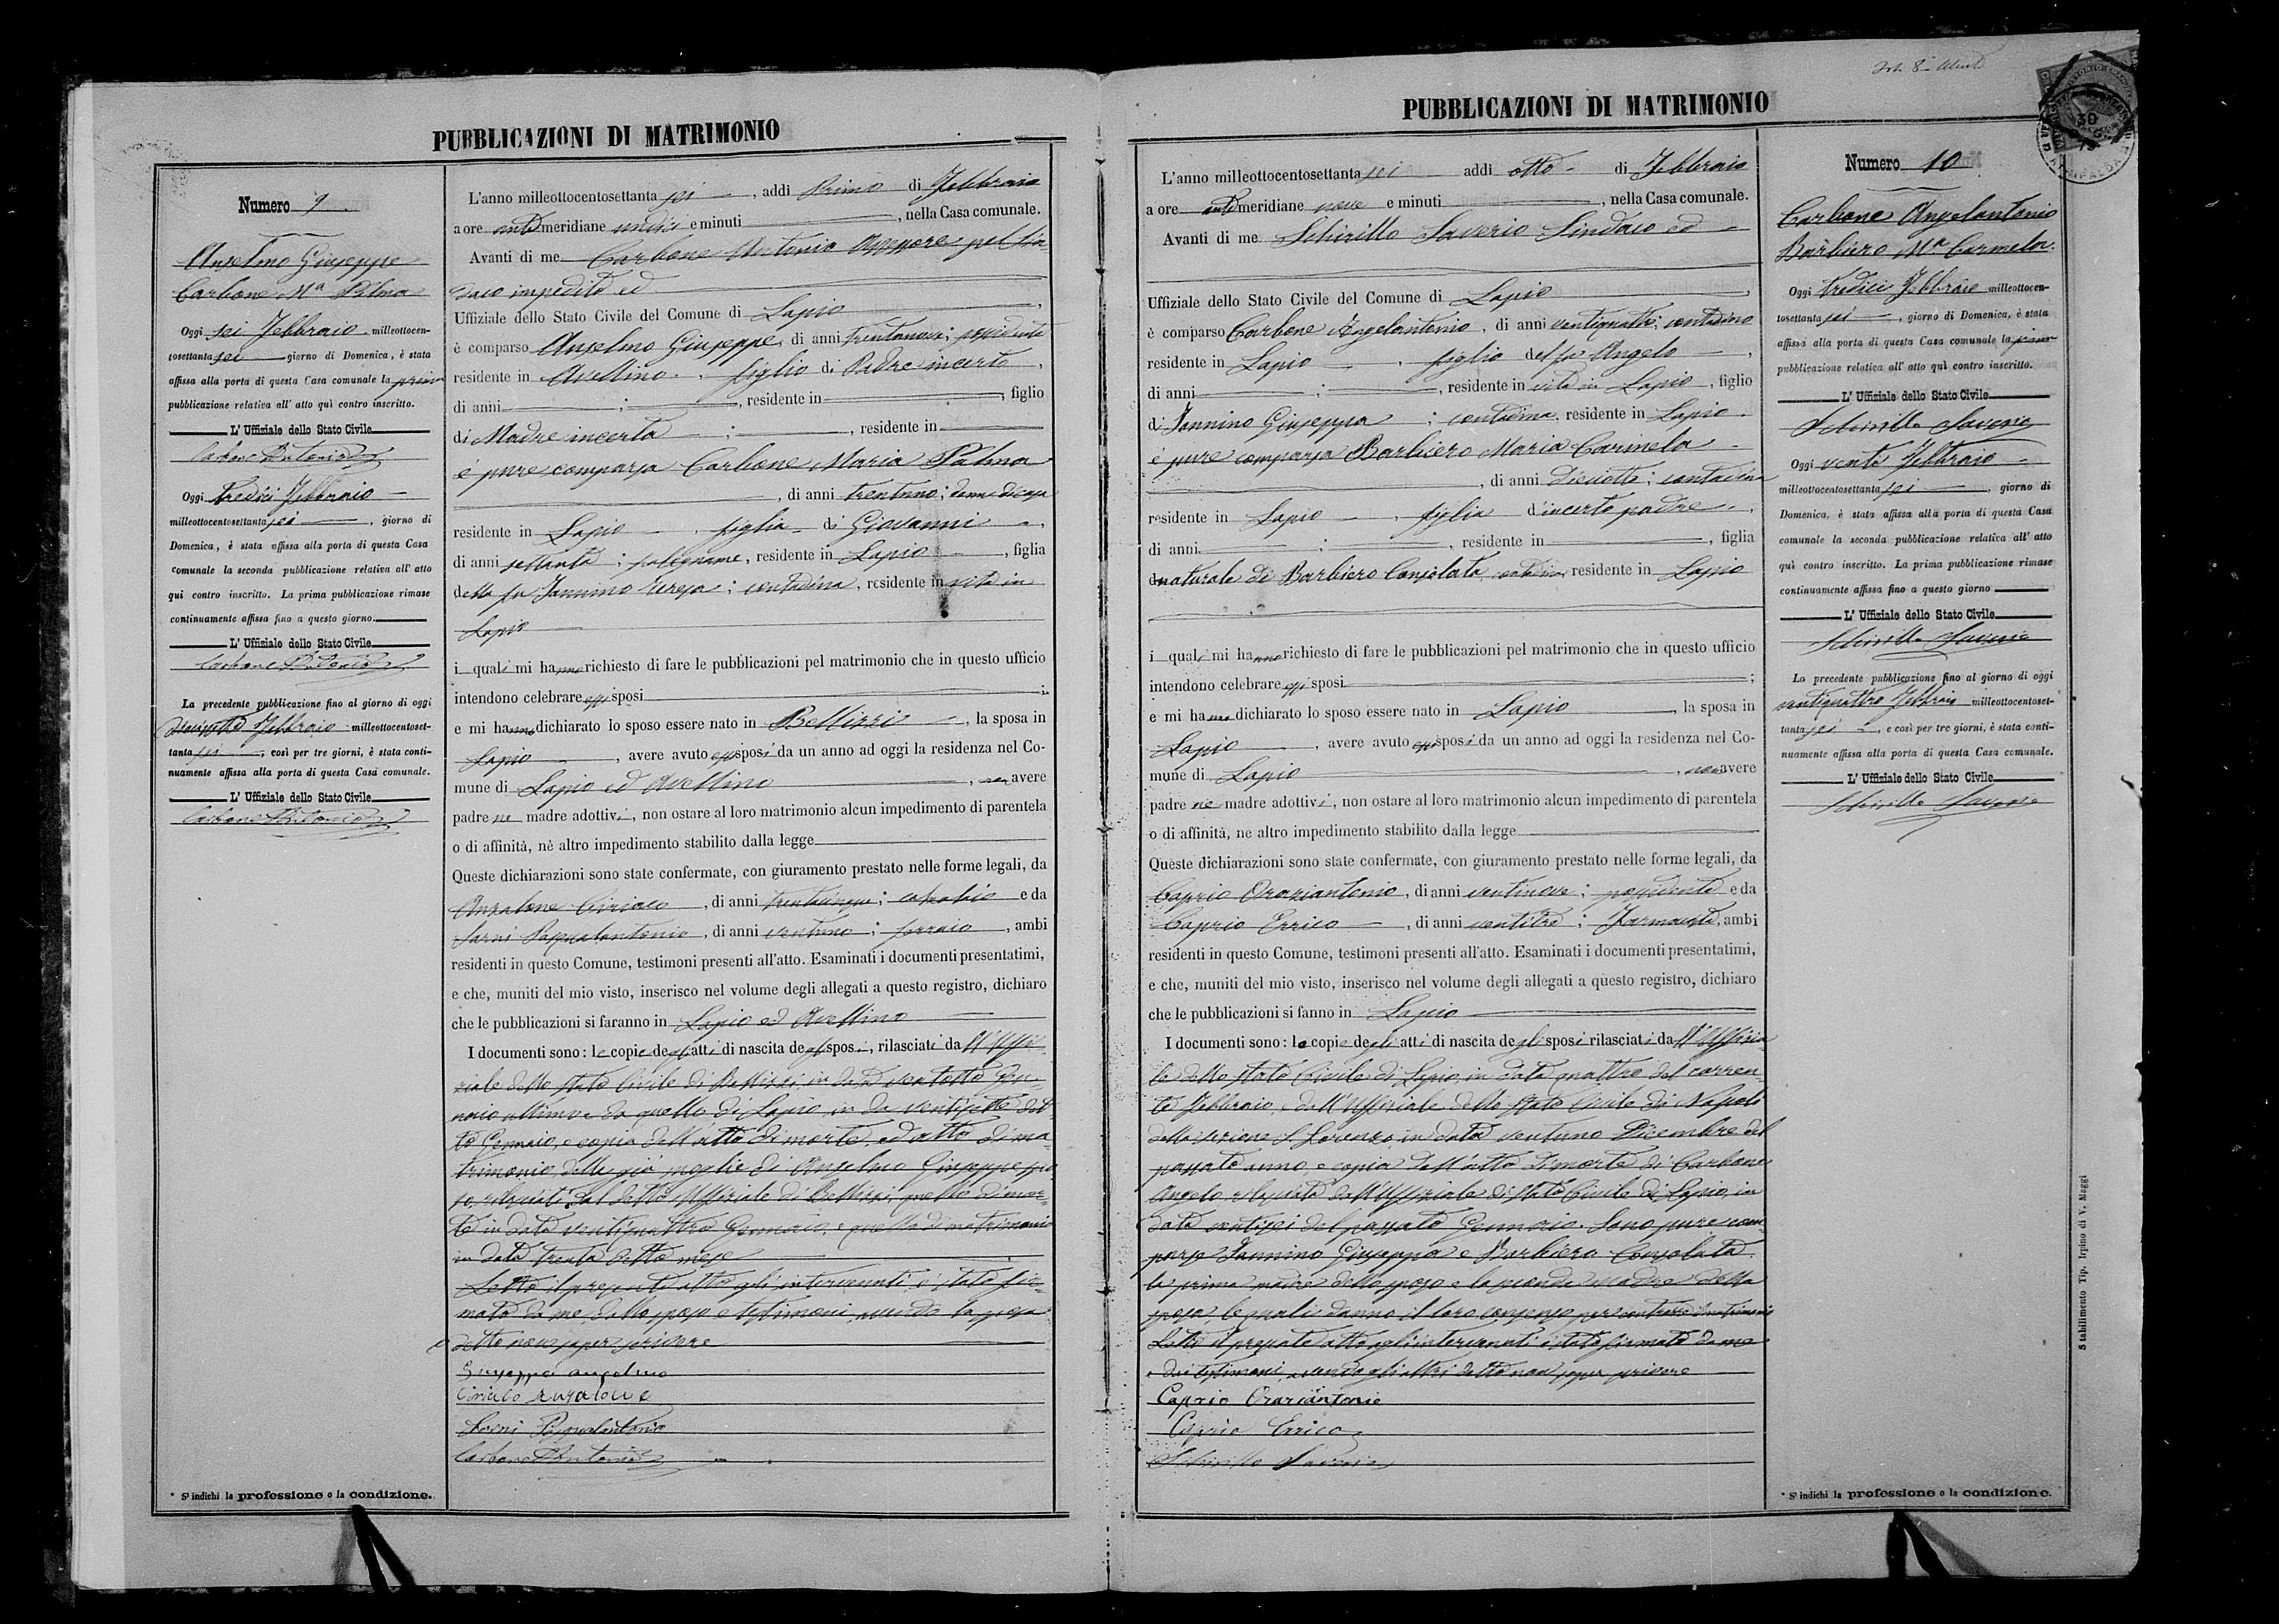 PUBBLICAZIONI DI MATRIMONIO
Numero 9
Anselmo Giuseppe
Carbone Ma Palma
Oggi sei Febbraio milleottocen-
tosettanta sei giorno di Domenica, è stata
affissa alla porta di questa Casa comunale la prima
pubblicazione relativa all' atto quì contro inscritto.
L' Uffiziale dello Stato Civile
Carbone Antonio
Oggi tredici Febbraio
milleottocentosettanta sei, giorno di
Domenica, è stata affissa alla porta di questa Casa
comunale la seconda pubblicazione relativa all' atto
qui contro inscritto. La prima pubblicazione rimase
continuamente affissa fino a questo giorno.
L' Uffiziale dello Stato Civile
Carbone Antonio
La precedente pubblicazione fino al giorno di oggi
Febbraio milleottocentoset-
tanta sei, così per tre giorni, è stata conti-
nuamente affissa alla porta di questa Casa comunale.
L' Uffiziale dello Stato Civile
Carbone Antonio
* S' indichi la professione o la condizione.
L'anno milleottocentosettanta sei, addi Primo di Febbraio
a ore antimeridiane undici e minuti, nella Casa comunale.
Avanti di me Carbone Antonio Assessore pel Sin-
daco impedito ed
Uffiziale dello Stato Civile del Comune di Lapio,
è comparso Anselmo Giuseppe, di anni trentanove; possidente
residente in Avellino, figlio di Padre incerto,
di anni ; , residente in ; figlio
di Madre incerta ; , residente in
è pure comparsa Carbone Maria Palma
, di anni trentuno; donna di casa
residente in Lapio, figlia di Giovanni,
di anni settanta; falegname, residente in Lapio, figlia
della fu Iannino Teresa; contadina, residente in vita in
Lapio
i quali mi hanno richiesto di fare le pubblicazioni pel matrimonio che in questo ufficio
intendono celebrare essi sposi ;
e mi hanno dichiarato lo sposo essere nato in Bellizzi, la sposa in
Lapio, avere avuto essi sposi da un anno ad oggi la residenza nel Co-
mune di Lapio ed Avellino, non avere
padre ne madre adottivi, non ostare al loro matrimonio alcun impedimento di parentela
o di affinità, nè altro impedimento stabilito dalla legge
Queste dichiarazioni sono state confermate, con giuramento prestato nelle forme legali, da
Anzalone Ciriaco, di anni trentacinque; e da
Sarni Pasqualantonio, di anni ventuno; ferraio, ambi
residenti in questo Comune, testimoni presenti all'atto. Esaminati i documenti presentatimi,
e che, muniti del mio visto, inserisco nel volume degli allegati a questo registro, dichiaro
che le pubblicazioni si faranno in Lapio ed Avellino
I documenti sono: le copie degli atti di nascita degli sposi, rilasciati dall'Uffi-
ziale dello stato Civile di Bellizzi in data ventotto Gen-
naio ultimo e da quello di Lapio in da ventisette det-
to Gennaio, e copia dell'atto di morte, ed atto di ma-
trimonio della già moglie di Anselmo Giuseppe spo-
so, rilasciati dal detto Uffiziale di Bellizzi, quello di mor-
te in data ventiquattro Gennaio, e quello di matrimonio
in data trenta detto mese
Letto il presente atto agli intervenuti è stato fir-
mato da me, dallo sposo e testimoni, avendo la sposa
detto non saper scrivere
Giuseppe Anselmo
Ciriaco Anzalone
Sarni Pasqualantonio
Carbone Antonio
PUBBLICAZIONI DI MATRIMONIO
L'anno milleottocentosettanta sei addi otto di Febbraio
a ore antimeridiane nove e minuti, nella Casa comunale.
Avanti di me Schirillo Saverio Sindaco ed
Uffiziale dello Stato Civile del Comune di Lapio,
è comparso Carbone Angelantonio, di anni ventiquattro; contadino
residente in Lapio, figlio del fu Angelo,
di anni ; , residente in vita in Lapio, figlio
di Iannino Giuseppa; contadina, residente in Lapio.
è pure comparsa Barbiero Maria Carmela
, di anni diciotto; contadina
residente in Lapio, figlia d'incerto padre,
di anni ; , residente in , figlia
naturale di Barbiero Consolata, contadina, residente in Lapio
i quali mi hanno richiesto di fare le pubblicazioni pel matrimonio che in questo ufficio
intendono celebrare essi sposi ;
e mi hanno dichiarato lo sposo essere nato in Lapio, la sposa in
Lapio, avere avuto essi sposi da un anno ad oggi la residenza nel Co-
mune di Lapio, non avere
padre ne madre adottivi, non ostare al loro matrimonio alcun impedimento di parentela
o di affinità, ne altro impedimento stabilito dalla legge
Queste dichiarazioni sono state confermate, con giuramento prestato nelle forme legali, da
Caprio Oraziantonio, di anni ventinove; possidente e da
Caprio Errico, di anni ventitre; Farmacista, ambi
residenti in questo Comune, testimoni presenti all'atto. Esaminati i documenti presentatimi,
e che, muniti del mio visto, inserisco nel volume degli allegati a questo registro, dichiaro
che le pubblicazioni si fanno in Lapio
I documenti sono: le copie degli atti di nascita degli sposi rilasciati dall'Uffizia-
le dello stato Civile di Lapio in data quattro del corren-
te Febbraio, e dall'Uffiziale dello stato Civile di Napoli
della sezione S. Lorenzo in data ventuno Dicembre del
passato anno, e copia dell'atto di morte di Carbone
Angelo rilasciata dall'Uffiziale di stato Civile di Lapio, in
data ventisei del passato Gennaio. Sono pure com-
parse Iannino Giuseppa e Barbiero Consolata
la prima madre dello sposo e la seconda madre della
sposa, le quali danno il loro consenso per contrarre matrimonio
Letto il presente atto agli intervenuti è stato firmato da me
e due testimoni, avendo gli altri detto non saper scrivere
Caprio Oraziantonio
Caprio Errico
Schirillo Saverio
Numero 10
Carbone Angelantonio
Barbiero Ma Carmela.
Oggi tredici Febbraio milleottocen-
tosettanta sei, giorno di Domenica, è stata
affissa alla porta di questa Casa comunale la prima
pubblicazione relativa all' atto quì contro inscritto.
L' Uffiziale dello Stato Civile
Schirillo Saverio
Oggi venti Febbraio
milleottocentosettanta sei, giorno di
Domenica, è stata affissa alla porta di questa Casa
comunale la seconda pubblicazione relativa all' atto
quì contro inscritto. La prima pubblicazione rimase
continuamente affissa fino a questo giorno
L' Uffiziale dello Stato Civile
Schirillo Saverio
La precedente pubblicazione fino al giorno di oggi
ventiquattro Febbraio milleottocentoset-
tanta sei, e così per tre giorni, è stata conti-
nuamente affissa alla porta di questa Casa comunale.
L' Uffiziale dello Stato Civile
Schirillo Saverio
* S' indichi la professione o la condizione.
Stabilimento Tip. Irpino di V. Maggi